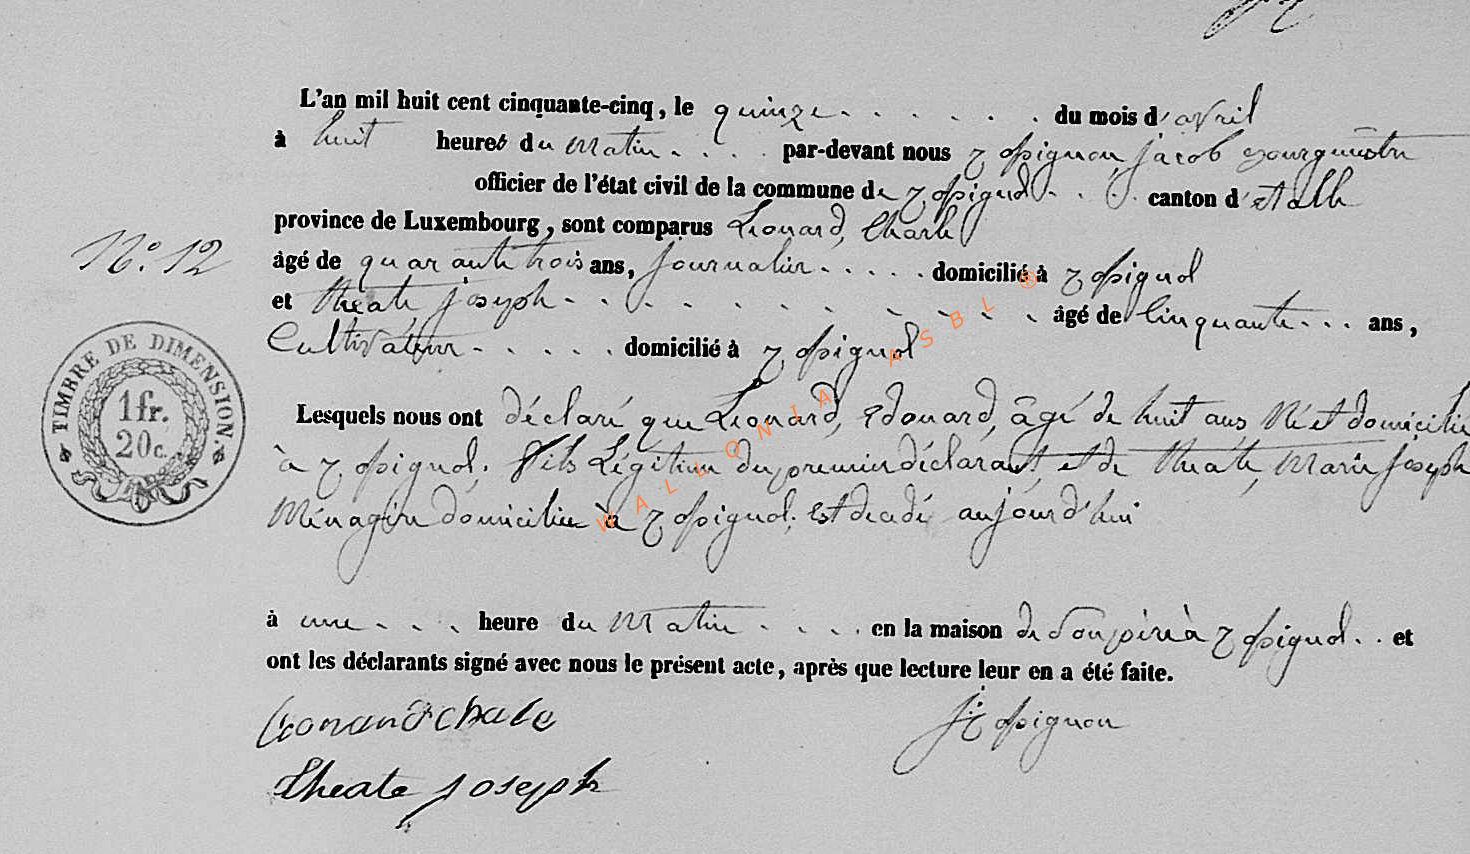 L'an mil huit cent cinquante-cinq, le quinze . . . . . . du mois d'avril
à huit heures du matin . . . . par-devant nous Rossignon, Jacob Bourguemestre
officier de l'état civil de la commune de Rossignol . . . canton d'Etalle
province de Luxembourg, sont comparus Léonard, Charle
N° 12
âgé de quarante trois ans, Journalier . . . . . domicilié à Rossignol
et Théate, joseph . . . . . . . . . . . . âgé de Cinquante . . . ans,
Cultivateur . . . . . domicilié à Rossignol
TIMBRE DE DIMENSION.
1 fr.
20 c.
Lesquels nous ont déclaré que Léonard, Edouard, âgé de huit ans, Né et domicilié
à Rossignol, Fils Légitime du premier déclarant, et de théate, Marie Joseph
Ménagère domiciliée à Rossignol, est decedé aujourd'hui
à une . . . heure du Matin . . . . en la maison de Son père à Rossignol . . et
ont les déclarants signé avec nous le présent acte, après que lecture leur en a été faite.
Leonard Chale
J: Rossignon
theate joseph
WALLONIA ASBL ®